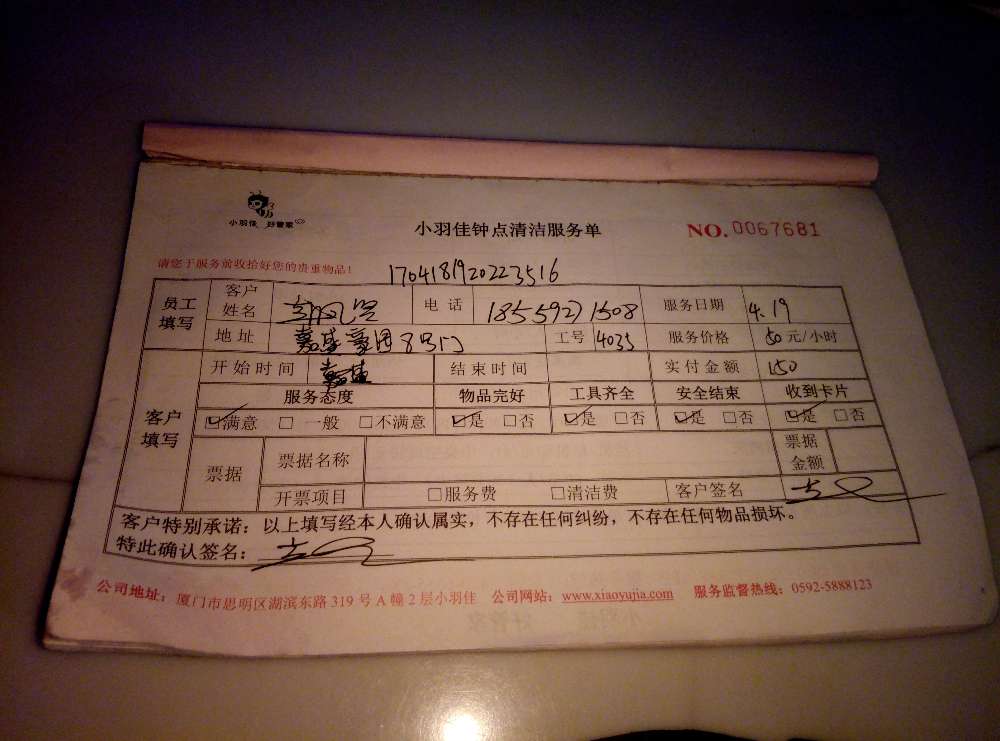 小羽佳 好管家
小羽佳钟点清洁服务单 NO. 0067681
请您于服务前收拾好您的贵重物品! 1704181920223516
员工填写 客户姓名 电话 18559271508 服务日期 4.19
地址 嘉盛豪园8号门 工号 4035 服务价格 50元/小时
客户填写 开始时间 结束时间 实付金额 150
服务态度 物品完好 工具齐全 安全结束 收到卡片
☑满意 □一般 □不满意 ☑是 □否 ☑是 □否 ☑是 □否 ☑是 □否
票据 票据名称 票据金额
开票项目 □服务费 □清洁费 客户签名
客户特别承诺:以上填写经本人确认属实,不存在任何纠纷,不存在任何物品损坏。
特此确认签名:
公司地址:厦门市思明区湖滨东路319号A幢2层小羽佳 公司网站:www.xiaoyujia.com 服务监督热线:0592-5888123